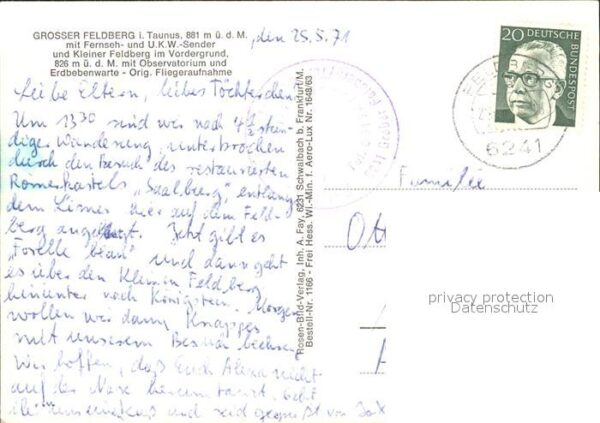 GROSSER FELDBERG i. Taunus, 881 m ü. d. M.
mit Fernseh- und U.K.W.-Sender
und Kleiner Feldberg im Vordergrund,
826 m ü. d. M. mit Observatorium und
Erdbebenwarte - Orig. Fliegeraufnahme
den 25.5.71
Liebe Eltern, liebes Töchterchen!
Um 13 30 sind wir nach 4 1/2 stün-
diger Wanderung, unterbrochen
durch den Besuch des restaurierten
Römerkastels "Saalberg", entlang
dem Limes hier auf dem Feld-
berg angelangt. Jetzt gibt es
"Forelle blau" und dann geht
es über den Kleinen Feldberg
hinunter nach Königstein. Morgen
wollen wir dann Knappes
mit unserem Besuch
Wir hoffen, daß Euch Alexa nicht
auf der Nase herumtanzt. Gebt
und seid gegrüßt von
Rosen-Bild-Verlag, Inh. A. Fay, 6231 Schwalbach b. Frankfurt/M.
Bestell-Nr. 1166 - Frei Hess. Wi.-Min. f. Aero-Lux Nr. 1648/63
20
DEUTSCHE BUNDESPOST
6241
Familie
Ott
privacy protection
Datenschutz